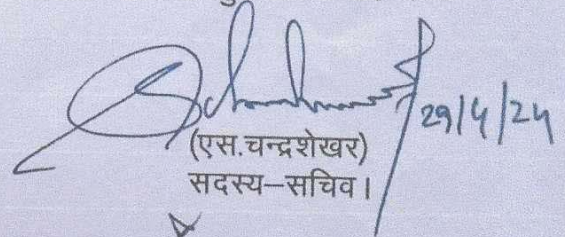 29/4/24
(एस.चन्द्रशेखर)
सदस्य–सचिव।